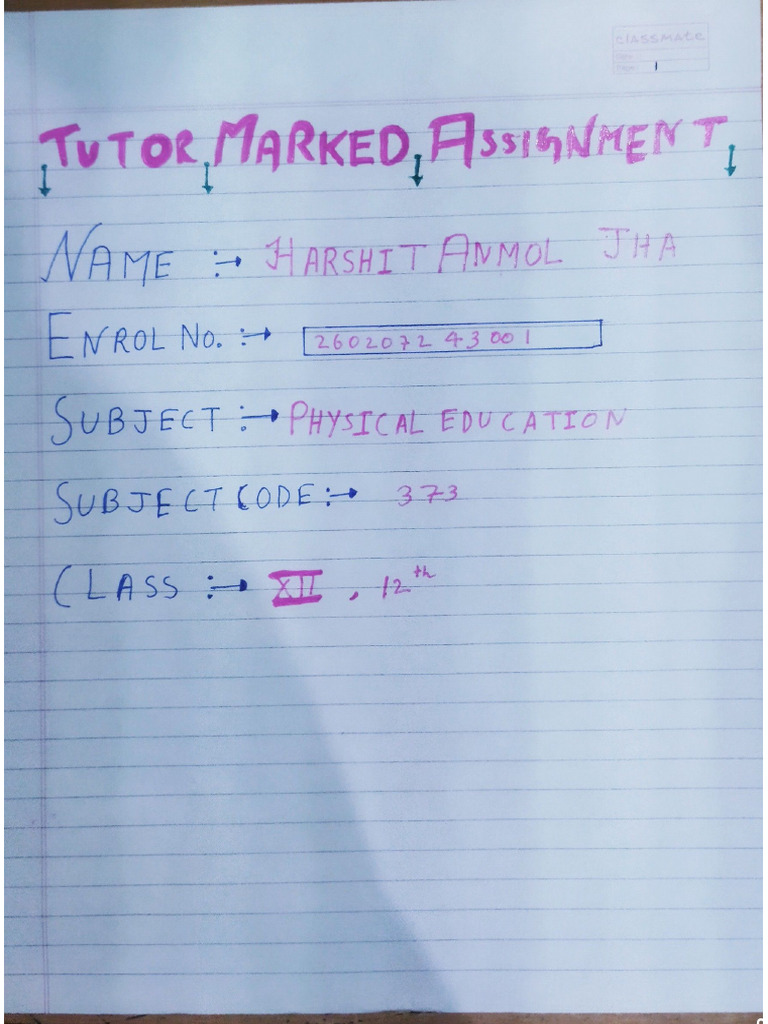 classmate
1
TUTOR MARKED ASSIGNMENT
NAME :→ HARSHIT ANMOL JHA
ENROL NO. :→ 260207243001
SUBJECT :→ PHYSICAL EDUCATION
SUBJECT CODE :→ 373
CLASS :→ XII , 12th